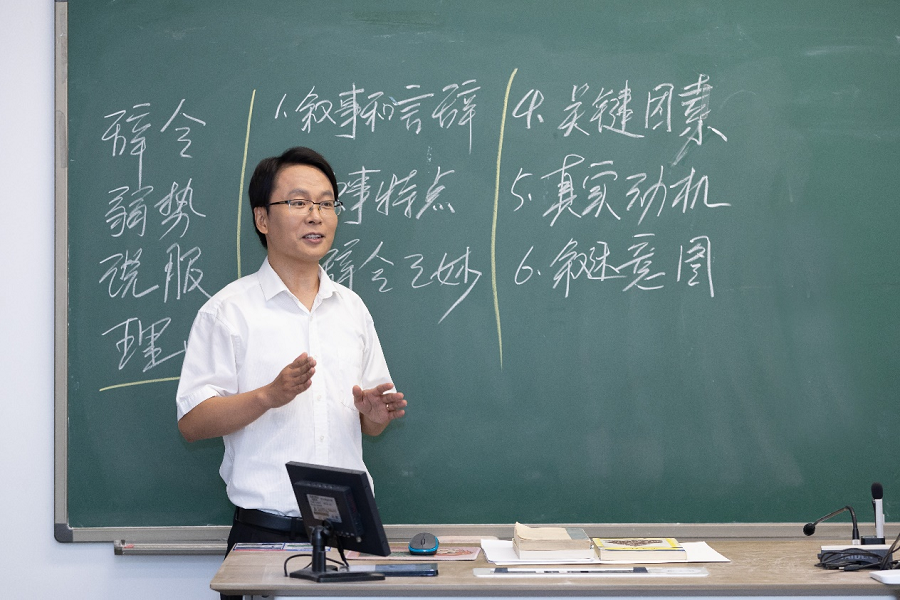 辞令
弱势
说服
理
1.叙事和言辞
事特点
辞令之妙
4.关键因素
5.真实动机
6.叙述意图